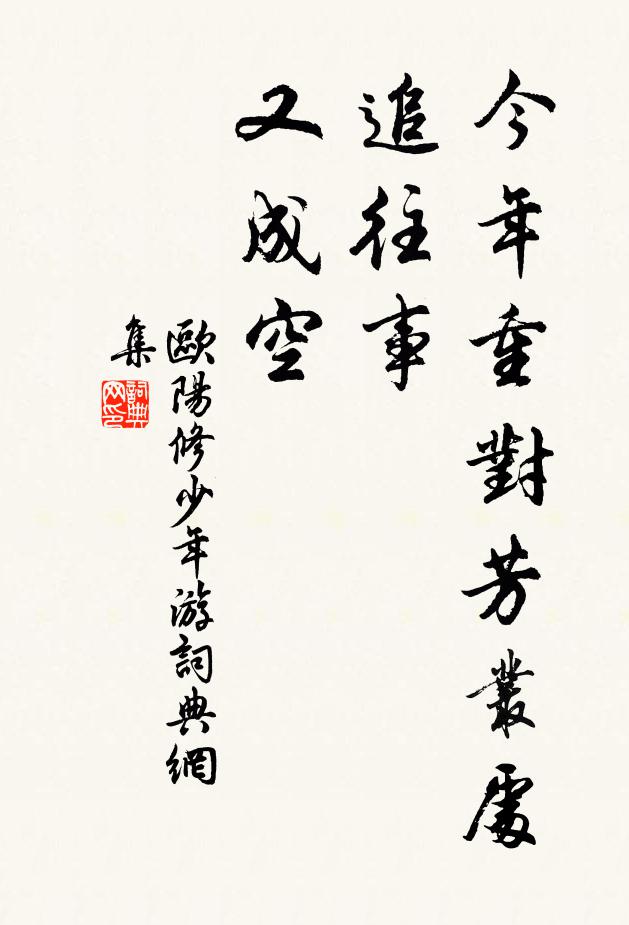 今年重對芳叢處
追往事
又成空
歐陽修少年游詞典網
集
詞典網印